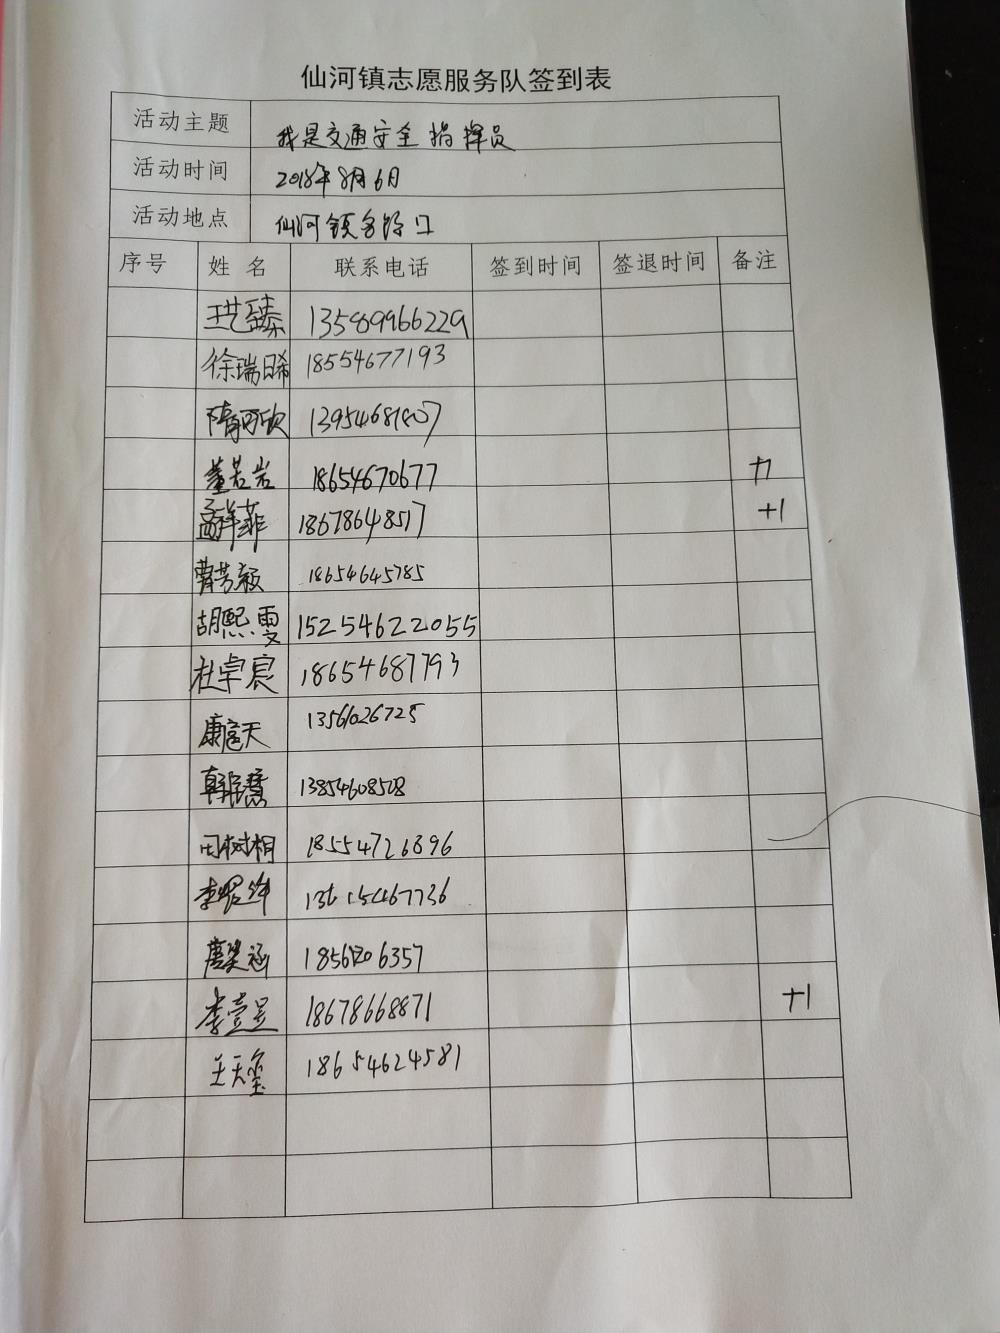 仙河镇志愿服务队签到表
活动主题 我是交通安全指挥员
活动时间 2018年8月6日
活动地点 仙河镇各路口
序号 姓名 联系电话 签到时间 签退时间 备注
王艺臻 13589966229
徐瑞晞 18554677193
隋可欣 13954681807
董若岩 18654670677 +1
孟祥菲 18678648517 +1
曹芳颖 18654645785
胡熙雯 15254622055
杜卓宸 18654687793
康 天 13561026725
韩 慧 13854608508
田树相 18554726896
李 13615467736
唐梁涵 18561206357
李壹昊 18678668871 +1
王天玺 18654624581